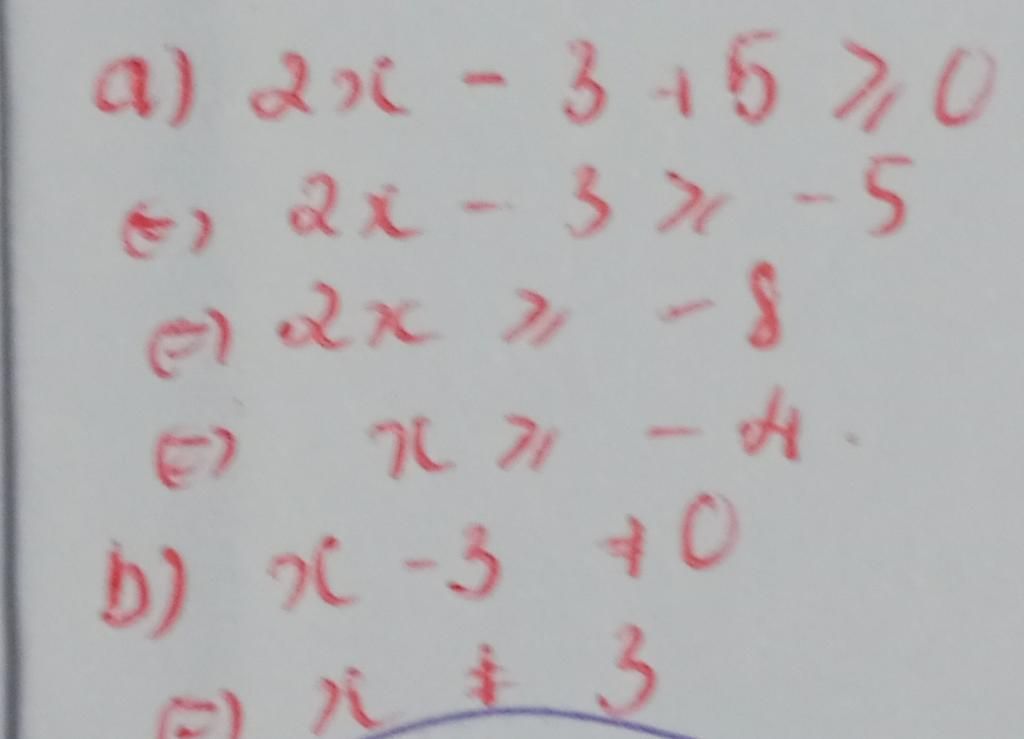 a) 2x - 3 + 5 ⩾ 0
<=> 2x - 3 ⩾ - 5
<=> 2x ⩾ - 8
<=> x ⩾ - 4.
b) x - 3 ≠ 0
<=> x ≠ 3